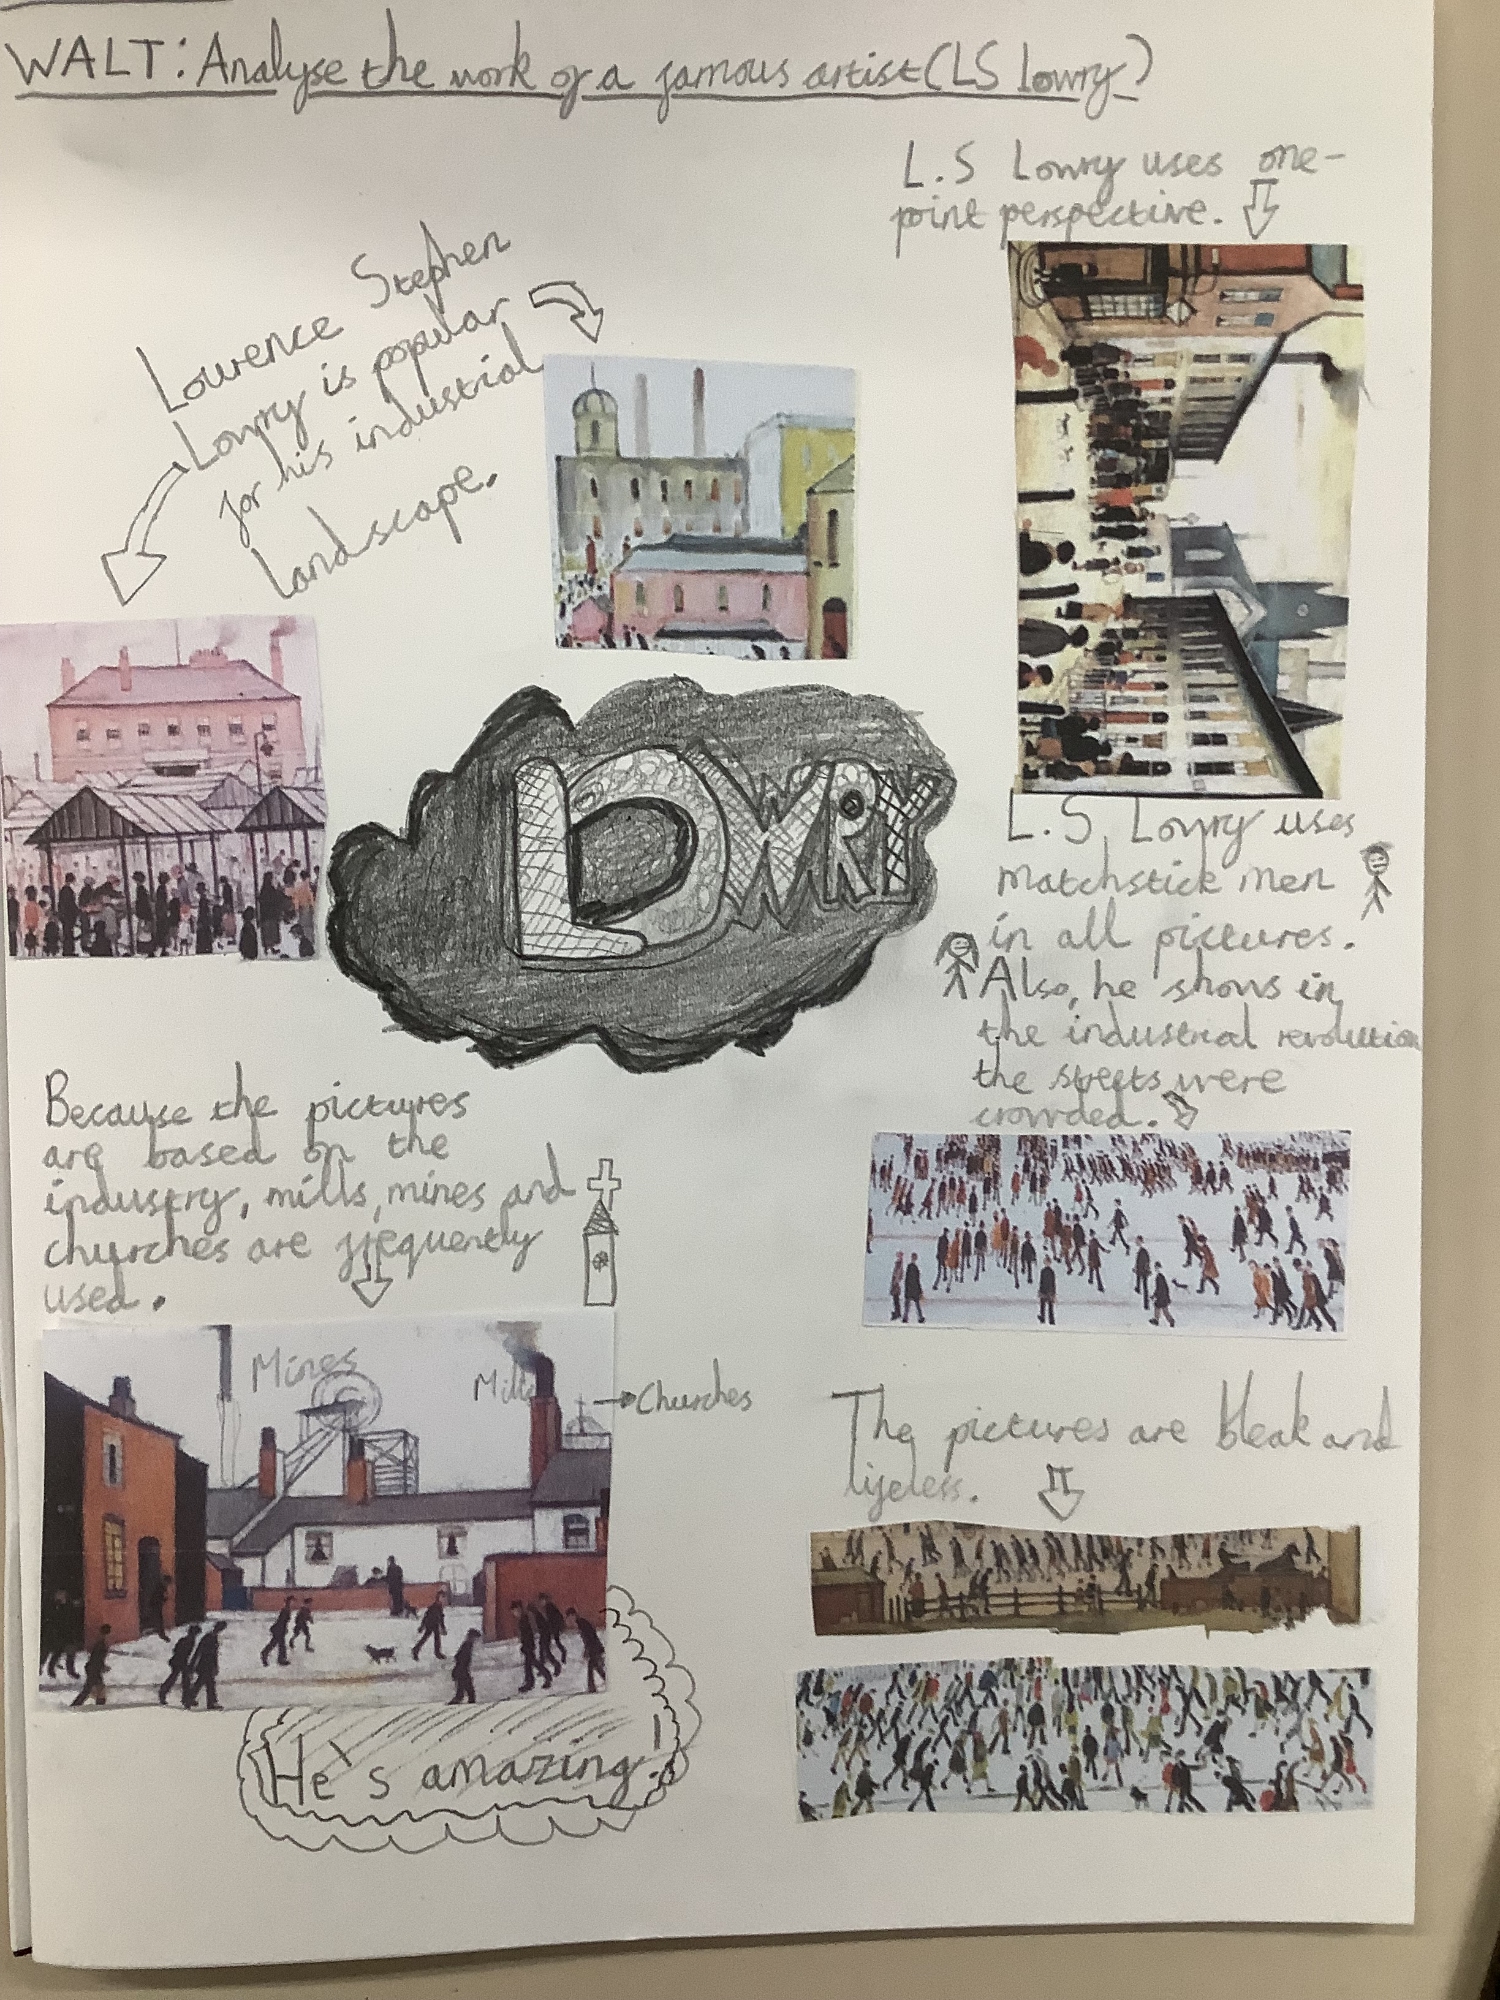 WALT: Analyse the work of a famous artist (LS lowry)
L.S Lowry uses one-
point perspective.
Lowrence Stephen
Lowry is popular
for his industrial
landscape.
LOWRY
L.S Lowry uses
matchstick men
in all pictures.
Also, he shows in
the industrial revolution
the streets were
crowded.
Because the pictures
are based on the
industry, mills, mines and
churches are frequently
used.
Mines
Mills
Churches
The pictures are bleak and
lifeless.
He's amazing!